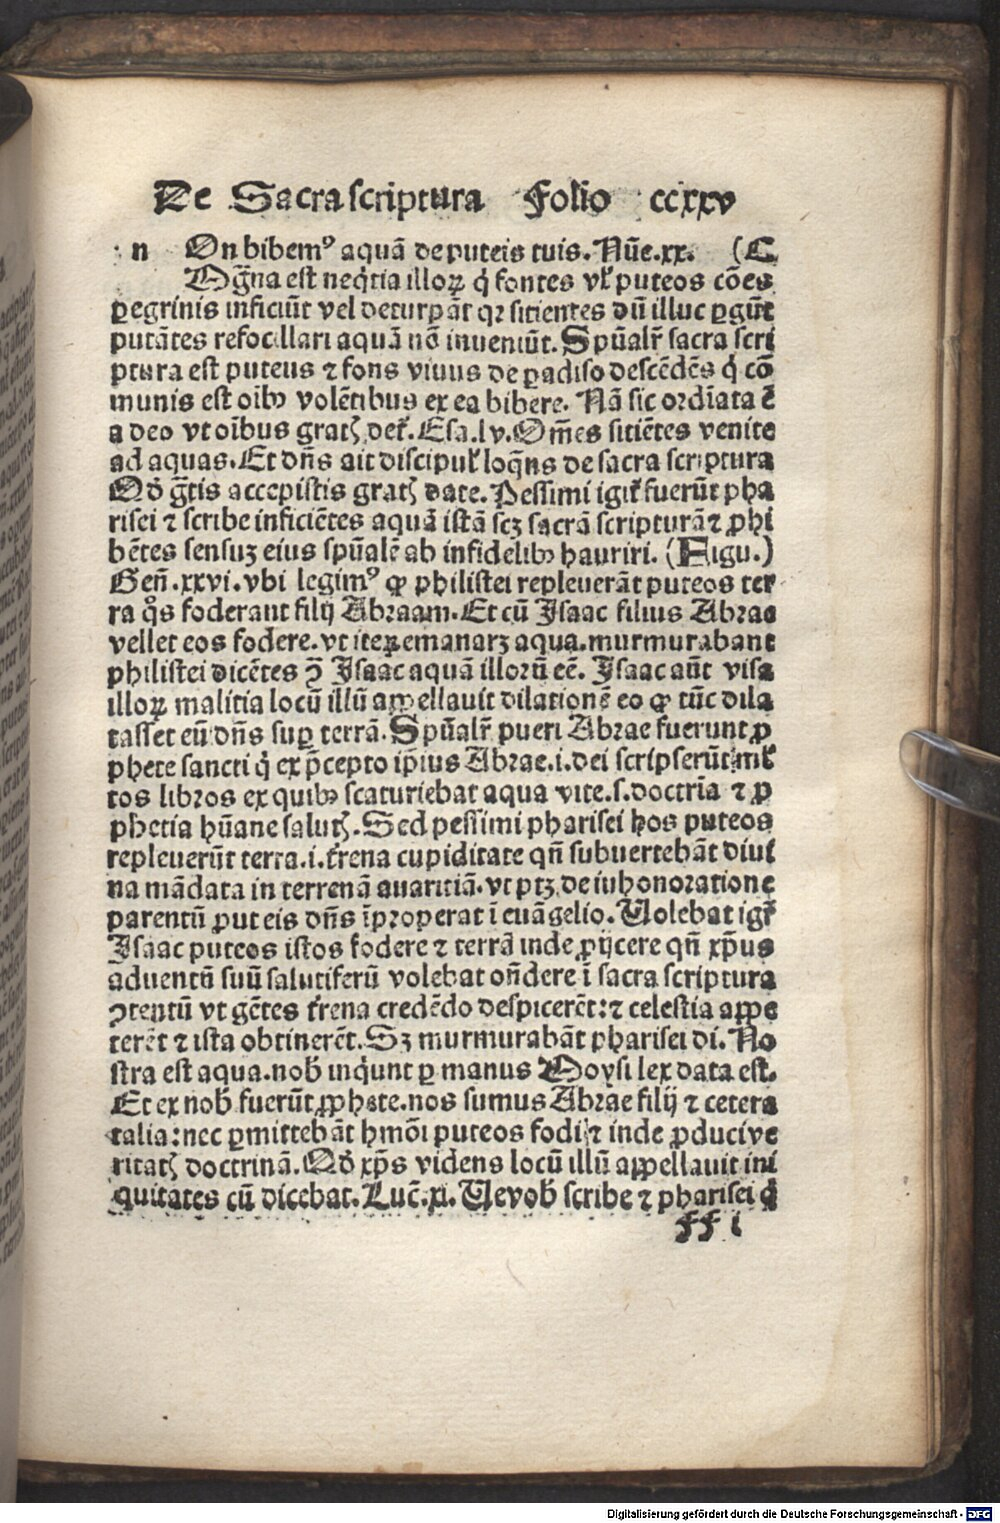 De Sacra scriptura Folio ccxxv
n On bibemꝰ aquā de puteis tuis. Nūe. xx. (C
Mg̃na est neq̇tia illoꝝ q̇ fontes vl̓ puteos cōes
ꝑegrinis inficiūt vel deturpāt qꝛ sitientes dū illuc ꝑgūt
putātes refocillari aquā nō inueniūt. Spūalr̃ sacra scri
ptura est puteus ⁊ fons viuus de ꝑadiso descēdēs q̇ cō
munis est oībꝯ volētibus ex ea bibere. Nā sic ordīata ē
a deo vt oībus gratꝭ det̃. Esa. lv. Om̄es sitiētes venite
ad aquas. Et dn̄s ait discipul̓ loq̃ns de sacra scriptura
Qđ g̃tis accepistis gratꝭ date. Pessimi igit̃ fuerūt pha
risei ⁊ scribe inficiētes aquā istā scꝫ sacrā scripturā ⁊ ꝓhi
bētes sensuꝫ eius spūalē ab infidelibꝯ hauriri. (Figu.)
Geñ. xxvi. vbi legimꝰ ꝙ philistei repleuerāt puteos ter
ra q̊s foderant filij Abraam. Et cū Isaac filius Abrae
vellet eos fodere. vt iteꝝ emanarꝫ aqua. murmurabant
philistei dicētes ꝯ̄ Isaac aquā illorū eē. Isaac aūt visa
illoꝝ malitia locū illū appellauit dilationē eo ꝙ tūc dila
tasset eū dn̄s suꝑ terrā. Spūalr̃ pueri Abrae fuerunt ꝓ
phete sancti q̇ ex p̄cepto ip̄ius Abrae. i. dei scripserūt ml̓
tos libros ex quibꝯ scaturiebat aqua vite. s. doctrīa ⁊ ꝓ
phetia hūane salutꝭ. Sed pessimi pharisei hos puteos
repleuerūt terra. i. t̓rena cupiditate qn̄ subuertebāt diui
na mādata in terrenā auaritiā. vt ptꝫ de iuhonoratione
parentū ꝓut eis dn̄s īproperat ī euāgelio. Uolebat igit̃
Isaac puteos istos fodere ⁊ terrā inde ꝓijcere qn̄ xp̄us
aduentū suū salutiferū volebat on̄dere ī sacra scriptura
ꝯtentū vt gētes t̓rena credēdo despicerēt: ⁊ celestia appe
terēt ⁊ ista obtinerēt. Sꝫ murmurabāt pharisei di. No
stra est aqua. nob̓ inq̇unt ꝑ manus Moysi lex data est.
Et ex nob̓ fuerūt ꝓphete. nos sumus Abrae filij ⁊ cetera
talia: nec ꝑmittebāt hmōi puteos fodi ⁊ inde ꝓduci ve
ritatꝭ doctrinā. Qđ xp̄s videns locū illū appellauit ini
quitates cū dicebat. Luc̃. xi. Ue vob̓ scribe ⁊ pharisei q̇
ff i
Digitalisierung gefördert durch die Deutsche Forschungsgemeinschaft - DFG